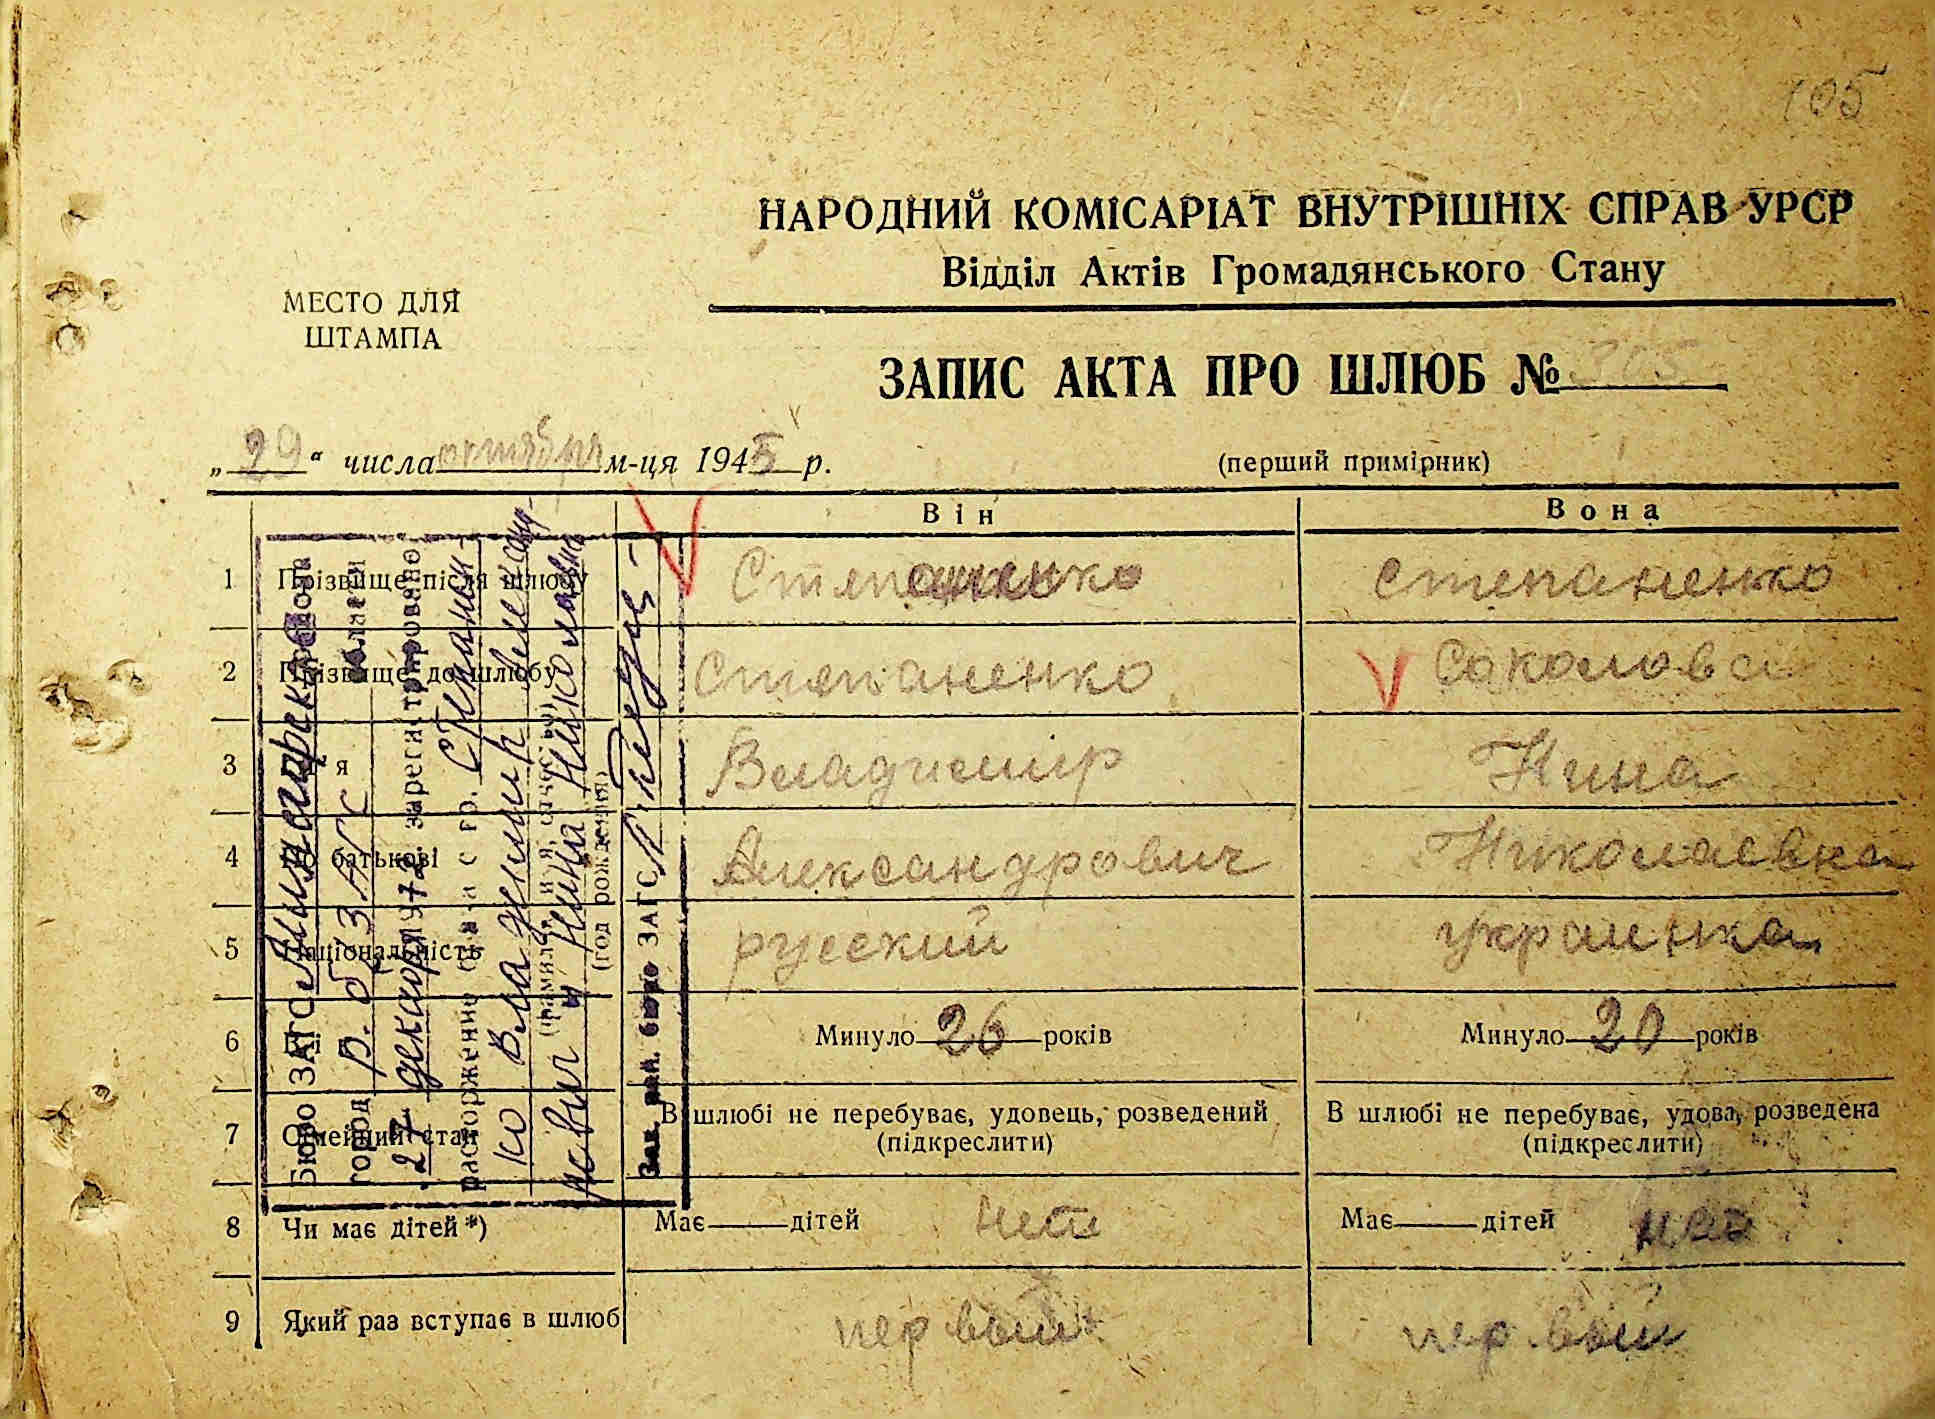 105
НАРОДНИЙ КОМІСАРІАТ ВНУТРІШНІХ СПРАВ УРСР
Відділ Актів Громадянського Стану
МЕСТО ДЛЯ
ШТАМПА
ЗАПИС АКТА ПРО ШЛЮБ № 305
„29“ числа октября м-ця 1945 р.
(перший примірник)
Він Вона
1 Прізвище після шлюбу Степаненко Степаненко
2 Прізвище до шлюбу Степаненко Соколова
3 Ім'я Владимир Нина
4 По батькові Александрович Николаевна
5 Національність русский украинка
6 Минуло 26 років Минуло 20 років
7 Сімейний стан В шлюбі не перебуває, удовець, розведений (підкреслити) В шлюбі не перебуває, удова, розведена (підкреслити)
8 Чи має дітей*) Має дітей нет Має дітей нет
9 Який раз вступає в шлюб первый первый
Бюро ЗАГС
город р. б ЗАГС области
27 декабря 1972 зарегистрировано
расторжение брака с гр. Степанен-
ко Владимир Александ-
(фамилия, имя, отчество)
рович и Нина Николаевна
(год рождения)
Зав. рай. бюро ЗАГС